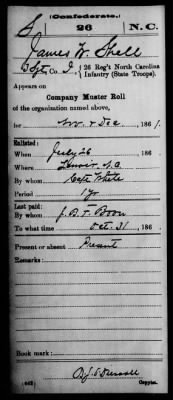 (Confederate.)
S 26 N.C.
James W. Shell
Sgt, Co. I, 26 Reg't North Carolina
Infantry (State Troops).
Appears on
Company Muster Roll
of the organization named above,
for Nov & Dec, 1861.
Enlisted:
When July 26, 186
Where Lenoir, N.C.
By whom Capt White
Period 1 yr
Last paid:
By whom J. B. F. Boon
To what time Oct. 31, 186
Present or absent Present
Remarks:
Book mark:
(642) Copyist.